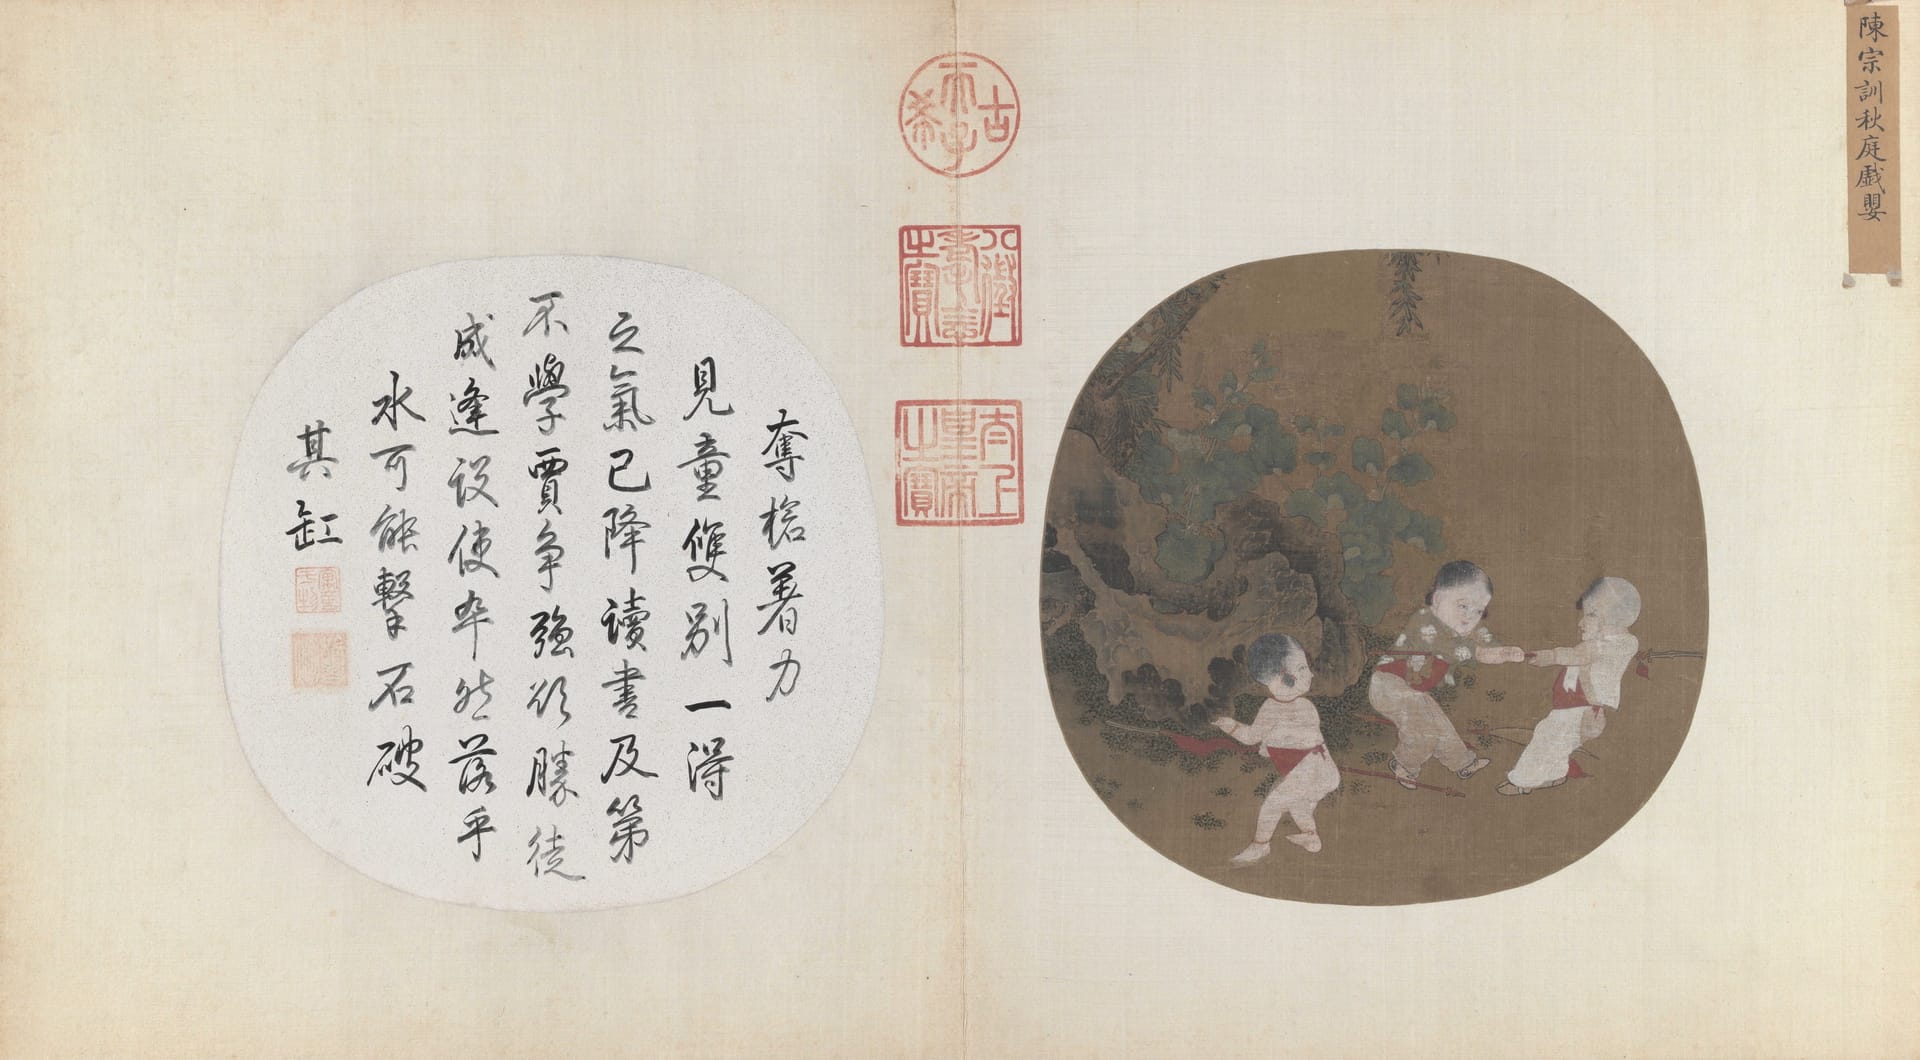 陳宗訓秋庭戲嬰
古希天子
八徵耄念之寶
太上皇帝之寶
奪槍著力
見童雙別一得
之氣已降讀書及第
不學賈爭強欲勝徒
成逢設使卒然落乎
水可能擊石破
其缸